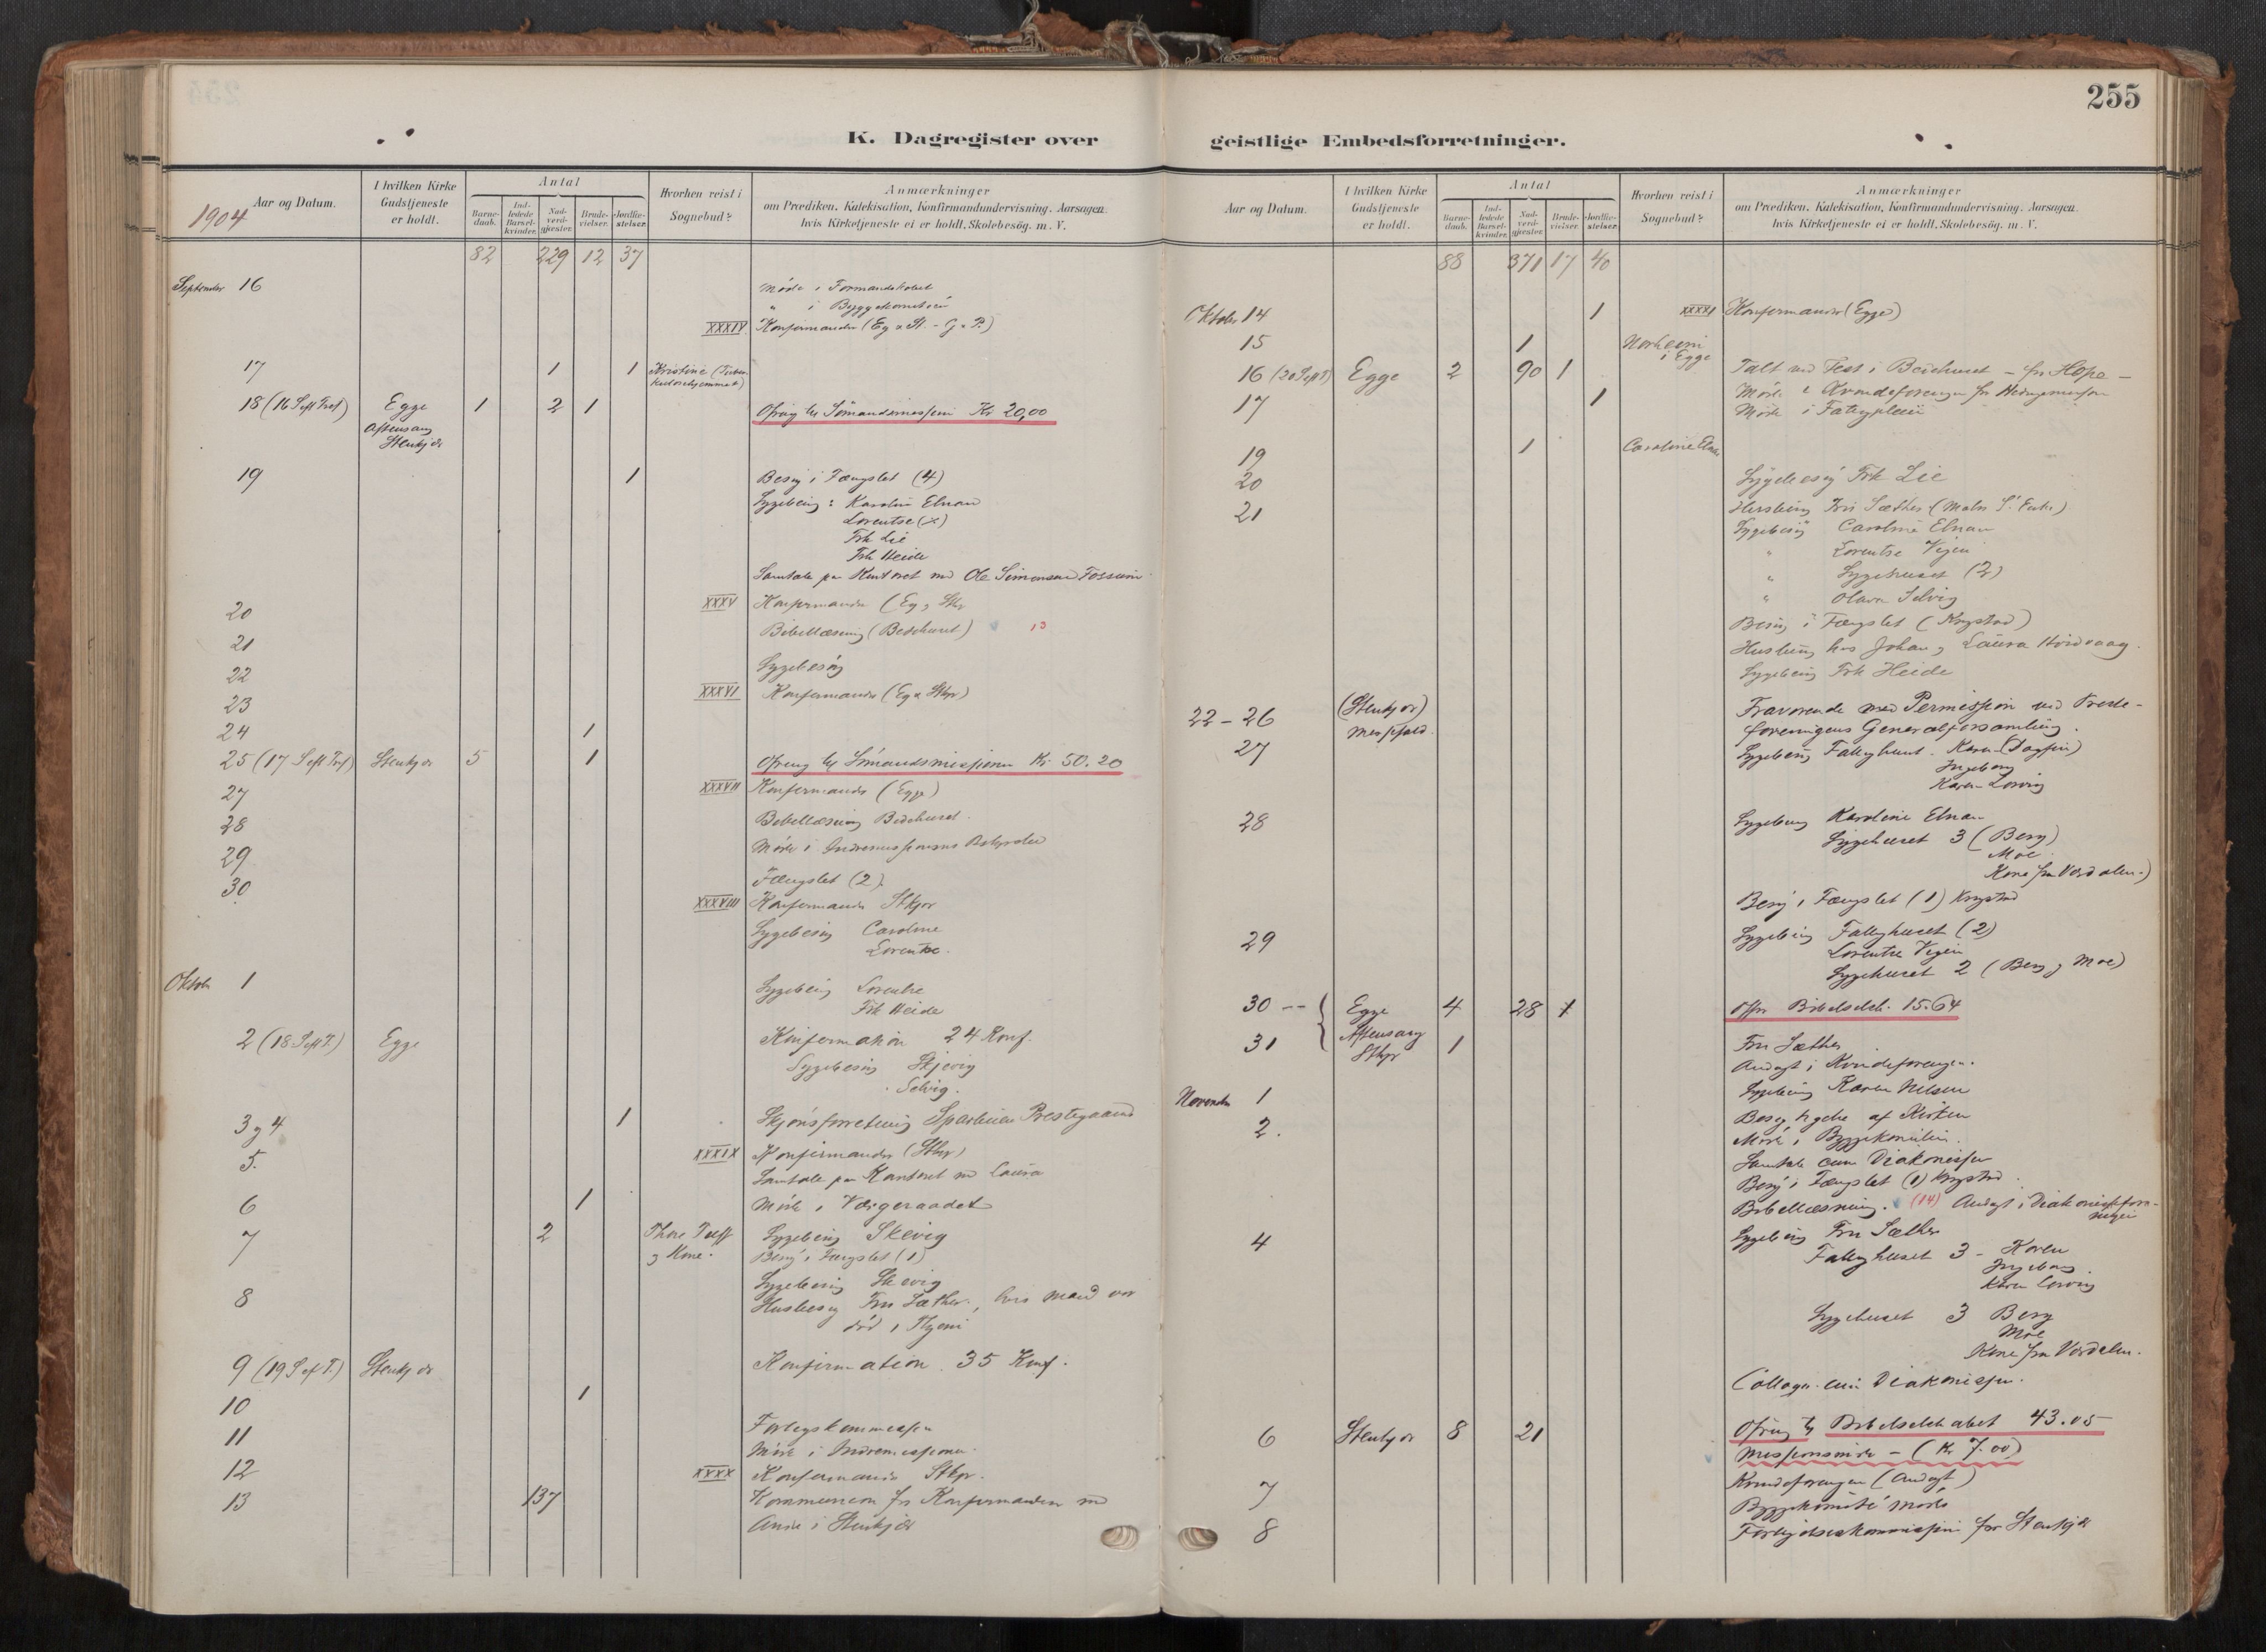 255
K. Dagregister over geistlige Embedsforretninger.
Aar og Datum.
1904
I hvilken Kirke Gudstjeneste er holdt.
Antal
Barnedaab.
Indledede Barselkvinder.
Nadverdgjester.
Brudevielser.
Jordfæstelser.
Hvorhen reist i Sognebud?
Anmærkninger
om Prædiken, Katekisation, Konfirmandundervisning. Aarsagen,
hvis Kirketjeneste ei er holdt. Skolebesög. m. V.
82 229 12 37
September 16 Møde i Formandskabet
" i Byggekomiteen
XXXIV Konfirmander (Eg & St. - G. P.)
17 1 1 Kristine (Tuberkulosehjemmet)
18 (16 S eft Tref) Egge 1 2 1 Ofring til Sömandsmissjonen Kr 20,00
Aftensang
Stenkjær
19 1 Besøg i Fængslet (4)
Sygebesøg: Karoline Elnan
Lorentse
Frk Lie
Frk Heide
Samtale paa Kontoret med Ole Simonsen Fossum
20 XXXV Konfirmander (Eg & Stkjr
Bibellæsning (Bedehuset) 13
21
22 Sygebesøg
23 XXXVI Konfirmander (Eg & Stkjr)
24 1
25 (17 S eft Tref) Stenkjær 5 1 Ofring til Sömandsmissjonen Kr 50.20
27 XXXVII Konfirmander (Egge)
28 Bibellæsning Bedehuset.
29 Møde i Indremissjonens Bestyrelse
30 Fængslet (2).
XXXVIII Konfirmander Stkjær
Sygebesøg Caroline
Lorentse.
Oktober 1 Sygebesøg Lorentse
Frk Heide
2 (18 S eft T.) Egge Konfirmation 24 Konf.
Sygebesøg Skjevig
Selvig.
3 og 4 1 Skjønsforretning Sparbuens Prestegaard
5. XXXIX Konfirmander (Stkjr)
Samtale paa Kontoret med Laura
6 1 Møde i Værgeraadet
7 2 Thore
og Kone. Sygebesøg Skevig
Besøg i Fængslet (1)
8 Sygebesøg Skevig
Husbesøg Fru Sæther, hvis Mand var
död i
9 (19 S ef T.) Stenkjær Konfirmation. 35 Konf.
10 1
11 Forligskommissjon
Møde i Indremissjonen
12 XXXX Konfirmander Stkjr.
13 137 Kommunion for Konfirmanden med
Andre i Stenkjær
Aar og Datum.
I hvilken Kirke Gudstjeneste er holdt.
Antal
Barnedaab.
Indledede Barselkvinder.
Nadverdgjester.
Brudevielser.
Jordfæstelser.
Hvorhen reist i Sognebud?
Anmærkninger
om Prædiken, Katekisation, Konfirmandundervisning. Aarsagen,
hvis Kirketjeneste ei er holdt. Skolebesög. m. V.
88 371 17 40
Oktober 14 1 XXXXI Konfirmander (Egge)
15 1 Norheim
i Egge
16 (20 S eft T) Egge 2 90 1 Talt ved Fest i Bedehuset - for Hope -
17 1 Møde i Kvindeforeningen for Hedningemissjonen
Møde i Fattigpleien
19 1 Caroline Elnan
20 Sygebesøg Frk Lie
21 Husbesøg Fru Sæther
Sygebesøg Caroline Elnan
" Lorentse Vigen
" Sygehuset (2)
" Olava Selvig
Besøg i Fængslet (Krystad)
Husbesøg hos Johan og Laura
Sygebesøg Frk Heide
22-26 (Stenkjær) Messefald. Fraværende med Permission ved Preste-
foreningens Generalforsamling.
27 Sygebesøg Fattighuset. Karen (Dagfin)
Ingeborg
Karen Lorvig
28 Sygebesøg Karoline Elnan
Sygehuset 3 (Berg)
Moe
Kone fra Værdalen.)
Besøg i Fængslet (1) Krystad
29 Sygebesøg Fattighuset (2)
Lorentse Vigen
Sygehuset 2 (Berg og Moe)
30 -- Egge 4 28 1 Ofr Bibelselsk. 15.64
31 Aftensang
Stkjr 1 Fru Sæther
Andagt i Kvindeforeningen.
November 1 Sygebesøg Karen Nilsen
2. Besigtigelse af Kirken
Møde i Byggekomiteen.
Samtale cum Diakonissen
Besøg i Fængslet (1) Krystad.
Bibellæsning. (14) Andagt i Diakonisseforeningen
4 Sygebesøg Fru Sæther
Fattighuset 3 - Karen
Ingeborg.
Karen Lorvig
Sygehuset 3 Berg
Moe
Kone fra Værdalen.
Colloqv. cum Diakonissen.
6 Stenkjær 8 21 Ofring til Bibelselskabet 43.05
Missjonsmøde - (Kr 7.00)
7 Kvindeforeningen (Andagt)
Byggekomité møde
8 Forligelseskommissjon for Stenkjær